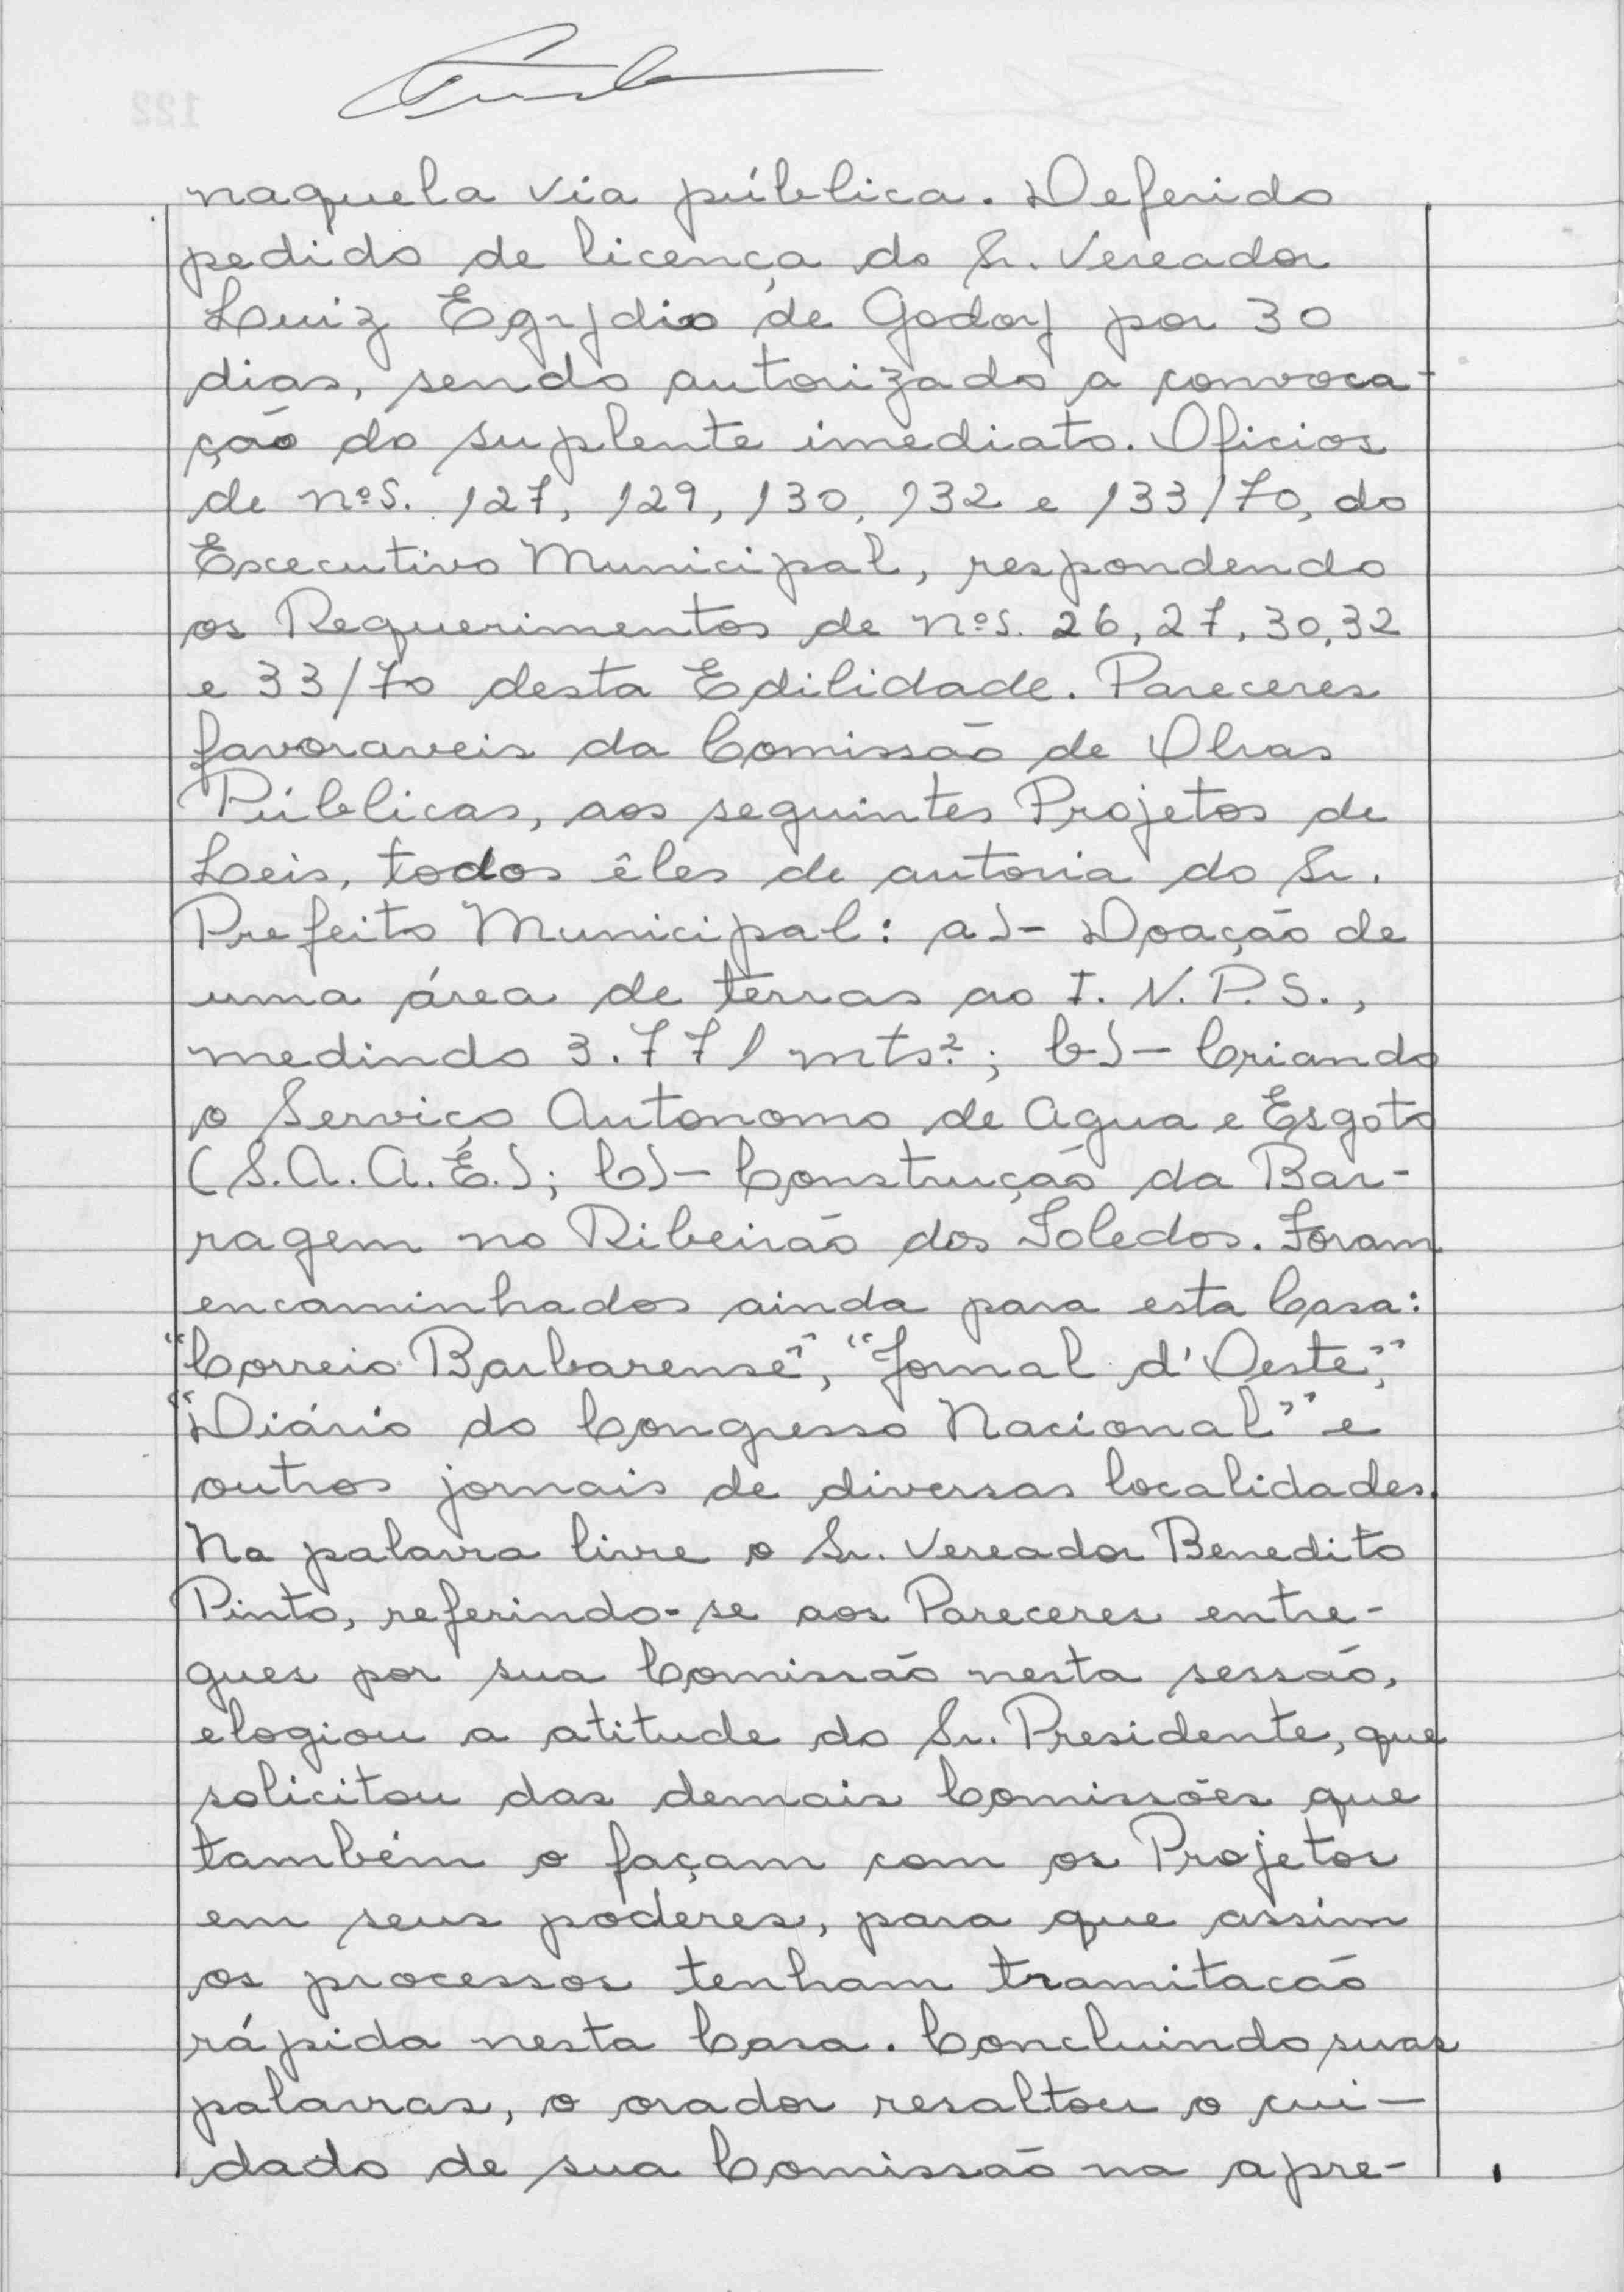 naquela via pública. Deferido
pedido de licença do Sr. Vereador
Luiz Egydio de Godoy por 30
dias, sendo autorizado a convoca-
ção do suplente imediato. Oficios
de nºs. 127, 129, 130, 132 e 133/70, do
Executivo Municipal, respondendo
os Requerimentos de nºs. 26, 27, 30, 32
e 33/70 desta Edilidade. Pareceres
favoraveis da Comissão de Obras
Públicas, aos seguintes Projetos de
Leis, todos êles de autoria do Sr.
Prefeito Municipal: a)- Doação de
uma área de terras ao I. N. P. S.,
medindo 3.771 mts²; b)- Criando
o Serviço Autonomo de Agua e Esgoto
(S.A.A.É.); C)- Construção da Bar-
ragem no Ribeirão dos Toledos. Foram
encaminhados ainda para esta Casa:
"Correio Barbarense", "Jornal d'Oeste",
"Diário do Congresso Nacional" e
outros jornais de diversas localidades.
Na palavra livre o Sr. Vereador Benedito
Pinto, referindo-se aos Pareceres entre-
gues por sua Comissão nesta sessão,
elogiou a atitude do Sr. Presidente, que
solicitou das demais Comissões que
também o façam com os Projetos
em seus poderes, para que assim
os processos tenham tramitacão
rápida nesta Casa. Concluindo suas
palavras, o orador resaltou o cui-
dado de sua Comissão na apre-